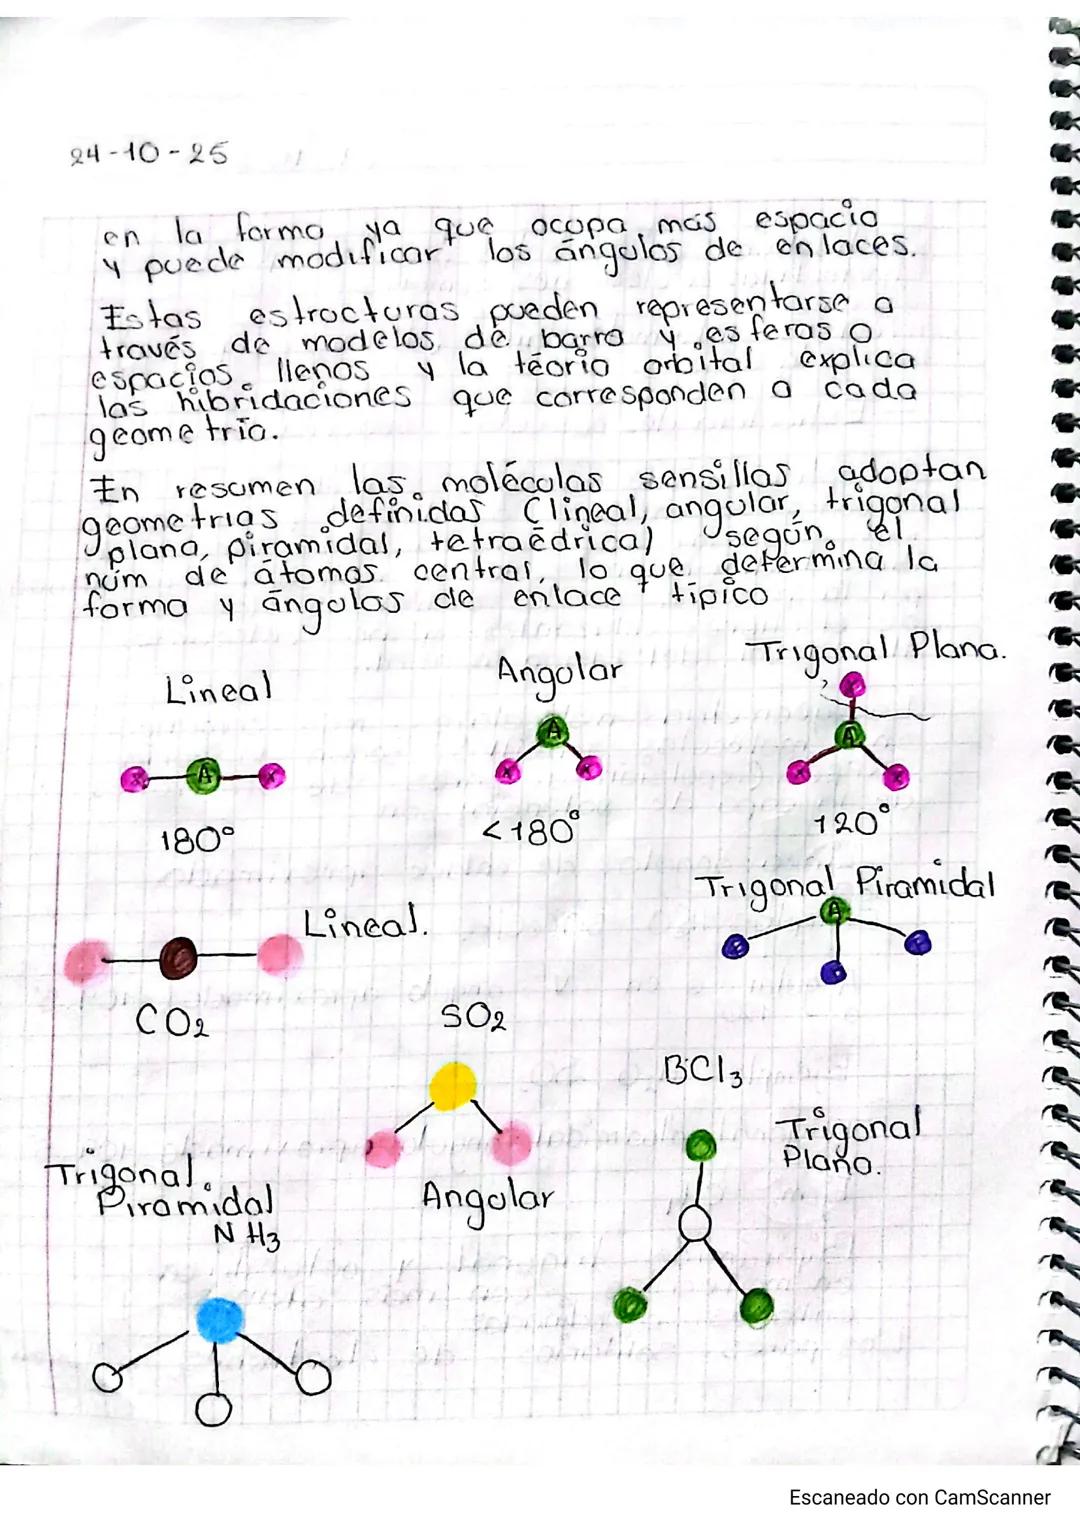 24-10-25
en la forma ya que ocupa más espacio
y puede modificar los ángulos de enlaces.
Estas estructuras pueden representarse a
través de modelos de barra y esferas o
espacios llenos y la téoria orbital explica
las hibridaciones que corresponden a cada
geometria.
En resumen las moléculas sensillas adoptan
geometrias definidas (lineal, angular, trigonal
plana, piramidal, tetraédrica) según el
núm de átomos central, lo que determina la
forma y ángulos de enlace típico
Lineal
Angular
Trigonal Plana.
X A X
A
X X
X
A
X X
180°
<180°
120°
Trigonal Piramidal
A
Lineal.
CO2
SO2
BCl3
Trigonal
Plano.
Trigonal
Piramidal
NH3
Angular
Escaneado con CamScanner